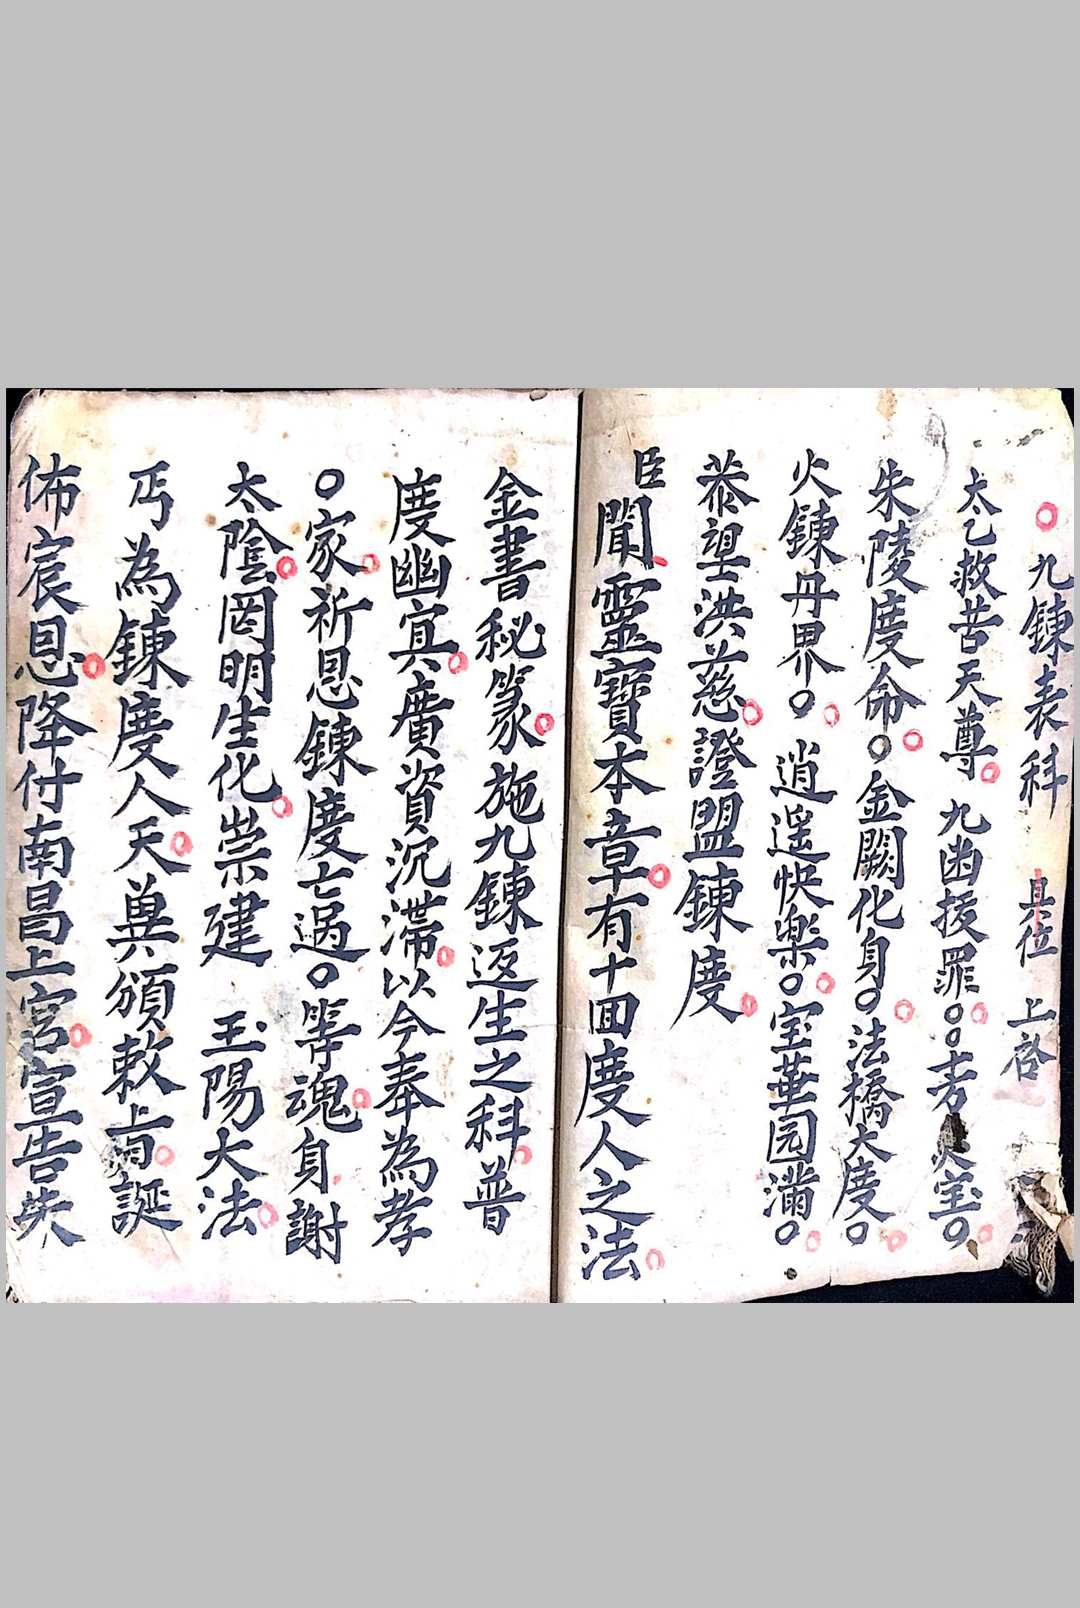 九鍊表科 具位 上啓
太乙救苦天尊 九幽拔罪〇〇
朱陵度命〇金闕化身〇法橋大度〇
火鍊丹界〇逍遥快樂〇宝華园滿〇
恭望洪慈證盟鍊度
臣聞靈寶本章有十回度人之法
金書秘篆施九鍊返生之科普
度幽寘廣資沉滯以今奉為孝
〇家祈恩鍊度亡過〇等魂身謝
太陰罔明生化崇建 玉陽大法
丐為鍊度人天兾頒敕旨誕
佈宸恩降付南昌上宮宣告失